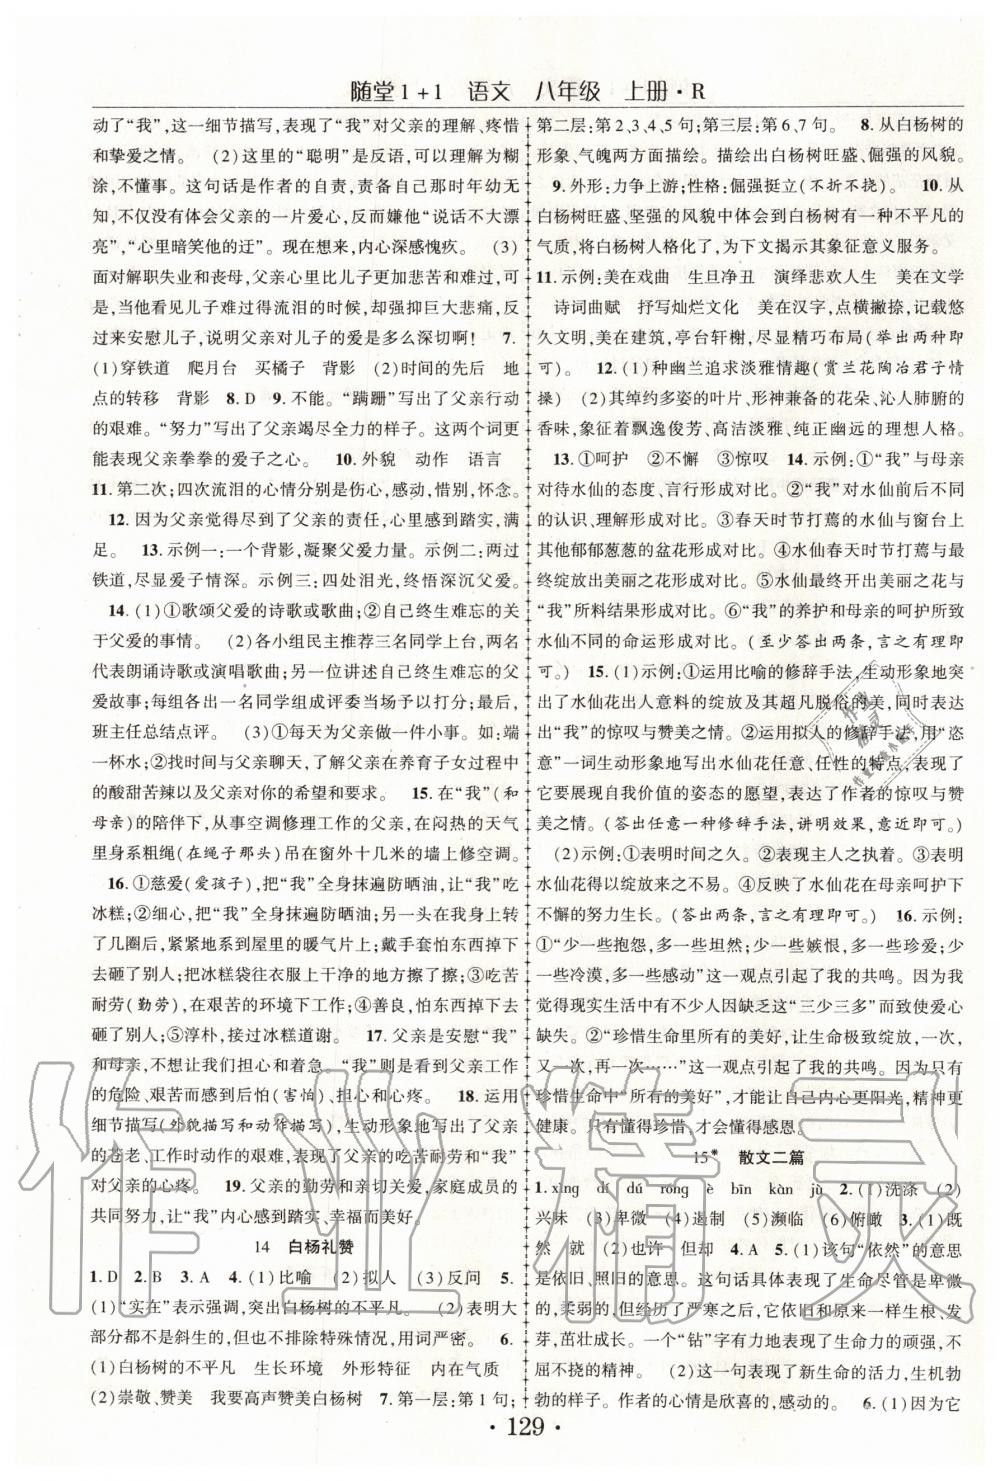 随堂1+1 语文 八年级 上册·R
动了“我”,这一细节描写,表现了“我”对父亲的理解、疼惜
和挚爱之情。 (2)这里的“聪明”是反语,可以理解为糊
涂,不懂事。这句话是作者的自责,责备自己那时年幼无
知,不仅没有体会父亲的一片爱心,反而嫌他“说话不大漂
亮”,“心里暗笑他的迂”。现在想来,内心深感愧疚。 (3)
面对解职失业和丧母,父亲心里比儿子更加悲苦和难过,可
是,当他看见儿子难过得流泪的时候,却强抑巨大悲痛,反
过来安慰儿子,说明父亲对儿子的爱是多么深切啊! 7.
(1)穿铁道 爬月台 买橘子 背影 (2)时间的先后 地
点的转移 背影 8. D 9. 不能。“蹒跚”写出了父亲行动
的艰难。“努力”写出了父亲竭尽全力的样子。这两个词更
能表现父亲拳拳的爱子之心。 10. 外貌 动作 语言
11. 第二次;四次流泪的心情分别是伤心,感动,惜别,怀念。
12. 因为父亲觉得尽到了父亲的责任,心里感到踏实,满
足。 13. 示例一:一个背影,凝聚父爱力量。示例二:两过
铁道,尽显父子情深。示例三:四处泪光,终悟深沉父爱。
14. (1)①歌颂父爱的诗歌或歌曲;②自己终生难忘的关
于父爱的事情。 (2)各小组民主推荐三名同学上台,两名
代表朗诵诗歌或演唱歌曲;另一位讲述自己终生难忘的父
爱故事;每组各选一名同学组成评委给予打分;最后,
班主任总结点评。 (3)①为父亲做一件小事。如:端
一杯水;②找时间与父亲聊天,了解父亲在养育子女过程中
的酸甜苦辣以及父亲对你的希望和要求。 15. 在“我”(和
母亲)的陪伴下,从事空调修理工作的父亲,在闷热的天气
里身系粗绳(在绳子那头)吊在窗外十几米的墙上修空调。
16. ①慈爱(爱孩子),把“我”全身抹遍防晒油,让“我”吃
冰糕;②细心,把“我”全身抹遍防晒油;把绳子在身上转
了几圈后,紧紧地系到屋里的暖气片上;戴手套怕东西掉下
去砸了别人;把冰糕袋往衣服上干净的地方擦了擦;③吃苦
耐劳(勤劳),在艰苦的环境下工作;④善良,怕东西掉下去
砸了别人;⑤淳朴,接过冰糕道谢。 17. 父亲是安慰“我”
和母亲,不想让我们担心和害怕。“我”则是看见父亲工作
的危险、艰苦而感到担心(害怕)、担心和心疼。 18. 运用
细节描写(外貌描写和动作描写),生动形象地写出了父亲
的苍老、工作时动作的艰难,表现了父亲的吃苦耐劳和“我”
对父亲的心疼。 19. 父亲的勤劳和亲切关爱,家庭成员的
共同努力,让“我”内心感到踏实、幸福而美好。
14 白杨礼赞
1. D 2. B 3. A 4. (1)比喻 (2)拟人 (3)反问 5.
(1)“实在”表示强调,突出白杨树的不平凡。 (2)表明大
部分都不是斜生的,但不排除特殊情况,用词严密。 6.
(1)白杨树的不平凡 生长环境 外形特征 内在气质
(2)崇敬、赞美 我要高声赞美白杨树 7. 第一层:第1句;
第二层:第2、3、4、5句;第三层:第6、7句。 8. 从白杨树的
形象、气魄两方面描绘。描绘出白杨树旺盛、倔强的风貌。
9. 外形:力争上游;性格:倔强挺立(不折不挠)。 10. 从
白杨树旺盛、坚强的风貌中体会到白杨树有一种不平凡的
气质,将白杨树人格化了,为下文揭示其象征意义服务。
11. 示例:美在戏曲 生旦净丑 演绎悲欢人生 美在文学
诗词曲赋 抒写灿烂文化 美在汉字,点横撇捺,记载悠
久文明;美在建筑,亭台轩榭,尽显精巧布局(举出一种即
可)。 12. (1)种幽兰追求淡雅情趣(赏兰花陶冶君子情
操) (2)其绰约多姿的叶片、形神兼备的花朵、沁人肺腑的
香味,象征着飘逸俊芳、高洁淡雅、纯正幽远的理想人格。
13. ①呵护 ②不懈 ③惊叹 14. 示例:①“我”与母亲
对待水仙的态度、言行形成对比。②“我”对水仙前后不同
的认识、理解形成对比。③春天时节打蔫的水仙与窗台上
其他郁郁葱葱的盆花形成对比。④水仙春天时节打蔫与
终绽放出美丽之花形成对比。⑤水仙最终绽放出美丽之花与
“我”所料结果形成对比。⑥“我”的养护和母亲的呵护所致
水仙不同的命运形成对比。(至少答出两条,言之有理即
可。) 15. (1)示例:①运用比喻的修辞手法,生动形象地写
出了水仙花出人意料的绽放及其超凡脱俗的美,表现了作者
的惊叹与赞美之情。②运用拟人的修辞手法,用“恣
意”一词生动形象地写出水仙花任意、任性的特点,表现了
它要展现自我价值的姿态的壮观,表达了作者的惊叹与赞
美之情。(答出任意一种修辞手法,讲明效果,意近即可。)
(2)示例:①表明时间之久。②表现主人之执着。③表明
水仙花得以绽放来之不易。④反映了水仙花在母亲呵护下
的努力生长。(答出两条,言之有理即可。) 16. 示例:
①“少一些抱怨,多一些坦然;少一些嫉恨,多一些珍爱;少
一些冷漠,多一些感动”这一观点引起了我的共鸣。因为我
觉得现实生活中有不少人因缺乏这“三少三多”而致使爱心
缺失。②“珍惜生命里所有的美好,让生命极致绽放,一次,
又一次,再一次……”这一观点引起了我的共鸣。我觉得
珍惜生命中“所有的美好”,才能让自己内心更阳光,精神更
健康。只有懂得珍惜,才会懂得感恩。
15* 散文二篇
1. xìng dí dú róng è bīn kàn jù 2. (1)洗涤 (2)
兴味 (3)卑微 (4)遏制 (5)濒临 (6)俯瞰 3. (1)既
然 就 (2)也许 但却 4. A 5. (1)该句“依然”的意思
是依旧、照旧的意思。这句话具体表现了生命尽管是卑微
的,柔弱的,但经历了严寒之后,它依旧和原来一样生根、发
芽,茁壮成长。一个“钻”字有力地表现了生命力的顽强,不
屈不挠的精神。 (2)这一句表现了新生命的活力,生机勃
勃的样子。作者的心情是欣喜的,感动的。 6. (1)因为它
·129·
作业精灵